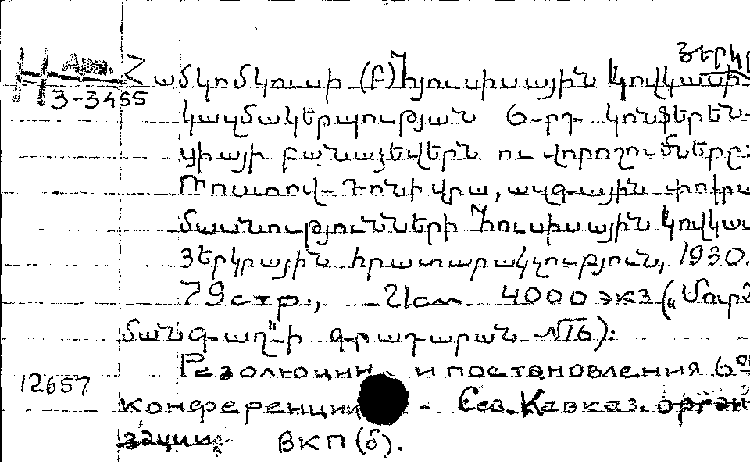 Երկր
H Арм. 2
3-3455
ամկոմկուսի (բ) Հյուսիսային Կովկասի
կազմակերպության 6-րդ կոնֆերեն-
ցիայի բանաձեվերն ու վորոշումները:
Ռոստով-Դոնի վրա, ազգային փոքրա
մասնությունների Հյուսիսային Կովկաս
Յերկրային հրատարակչություն, 1930.
79 стр., 21см 4000 экз („Մարտ
ճանգաղ"-ի գրադարան №16):
Резолюции и постановления 6ой
12657
конференции - Сев. Кавказ. орган
зации ВКП(б).